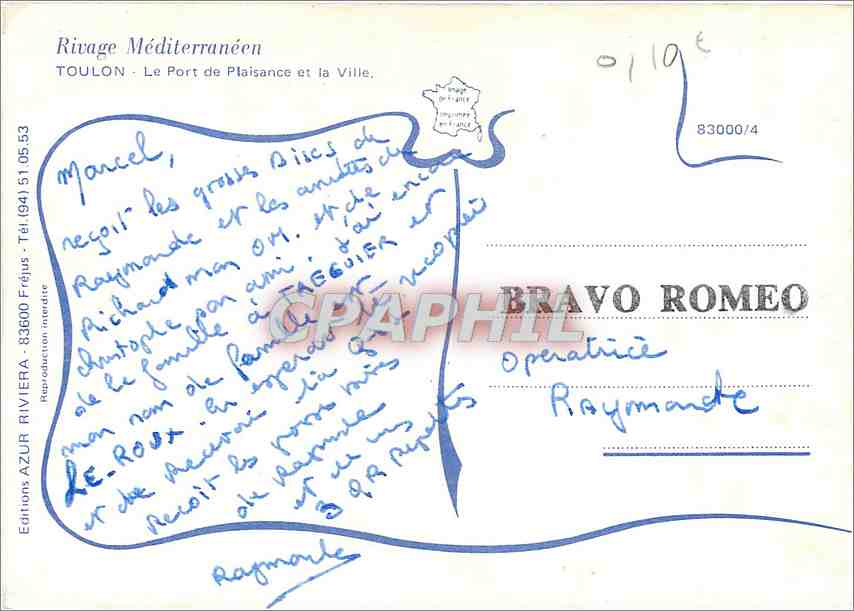 Rivage Méditerranéen
TOULON - Le Port de Plaisance et la Ville.
Image de France
Imprimée en France
0,10€
83000/4
Editions AZUR RIVIERA - 83600 Fréjus - Tél.(94) 51.05.53
Reproduction interdite
Marcel,
reçoit les grosses Bises de
Raymonde et les amitiés de
Richard mon OM. et de
christophe mon ami. j'ai encore
de la famille à TREGUIER et
mon nom de famille
LE-ROUX en esperant
et de recevoir ta QSL
Recoit les grosses bises
de Raymonde
et de ses
3 QR Repetés
Raymonde
CPAPHIL
BRAVO ROMEO
Operatrice
Raymonde